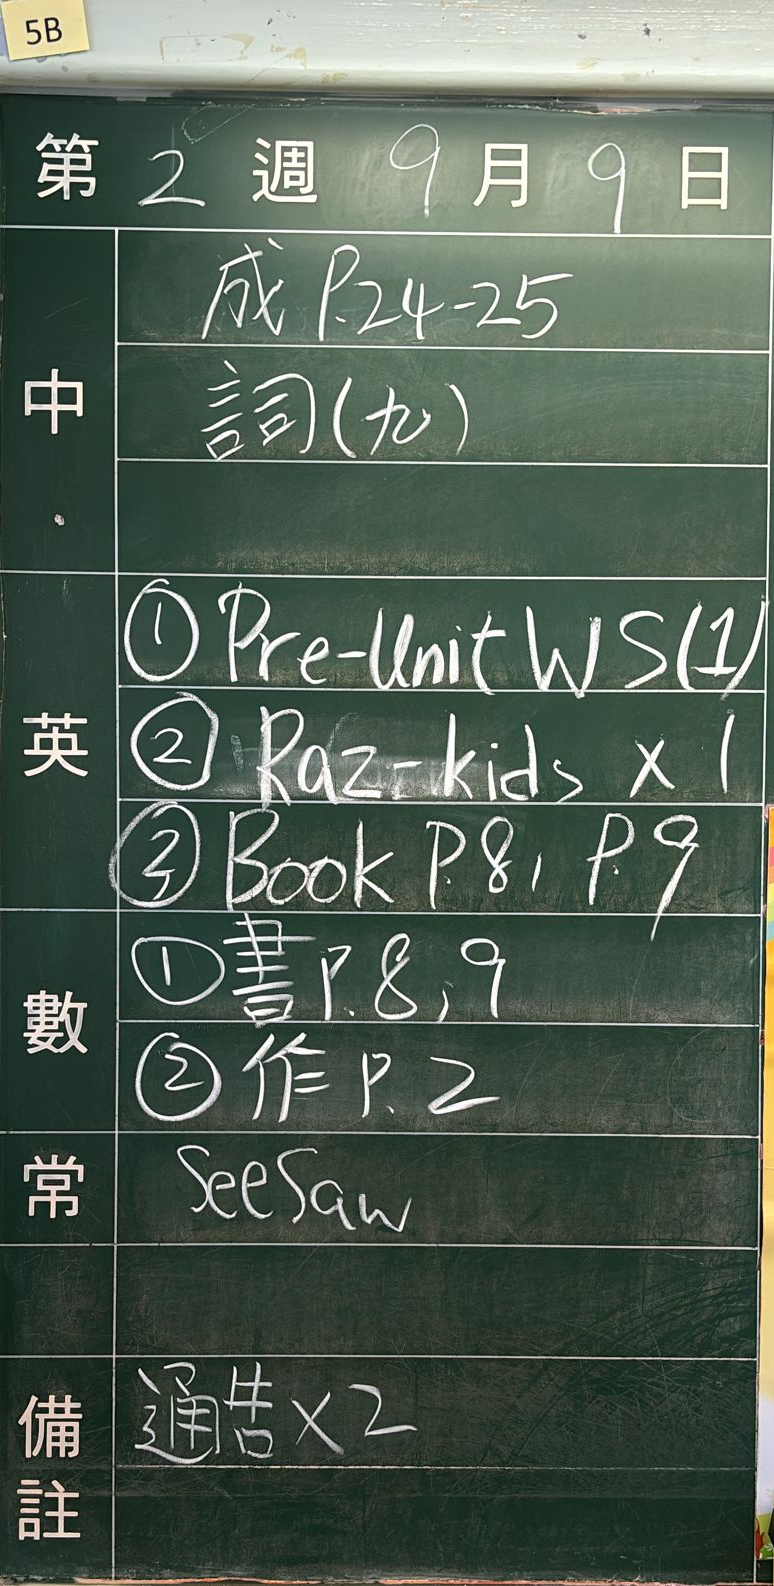 5B
第 2 週 9 月 9 日
中
成 P.24-25
詞(九)
英
① Pre-Unit WS(1)
② Raz-kids x 1
③ Book P.8, P.9
數
① 書 P.8,9
② 作 P.2
常
SeeSaw
備註
通告 x 2